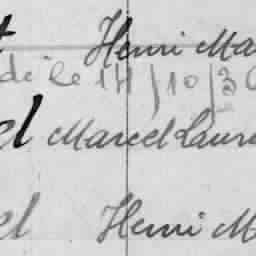 Henri Ma
dé le 14/10/30
el Marcel Laure
el Henri M